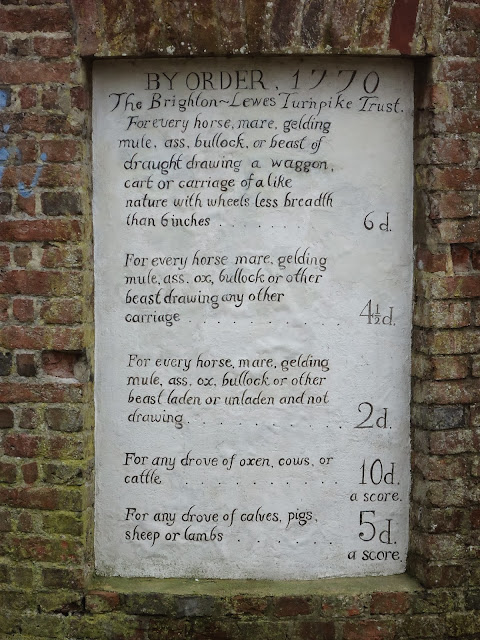 BY ORDER, 1770
The Brighton~Lewes Turnpike Trust.
For every horse, mare, gelding
mule, ass, bullock, or beast of
draught drawing a waggon,
cart or carriage of a like
nature with wheels less breadth
than 6 inches . . . . . . . 6d.
For every horse mare, gelding
mule, ass, ox, bullock or other
beast drawing any other
carriage . . . . . . . . . 4½d.
For every horse, mare, gelding
mule, ass, ox, bullock or other
beast laden or unladen and not
drawing . . . . . . . . . 2d.
For any drove of oxen, cows, or
cattle . . . . . . . . . . 10d.
a score.
For any drove of calves, pigs,
sheep or lambs . . . . . . 5d.
a score.